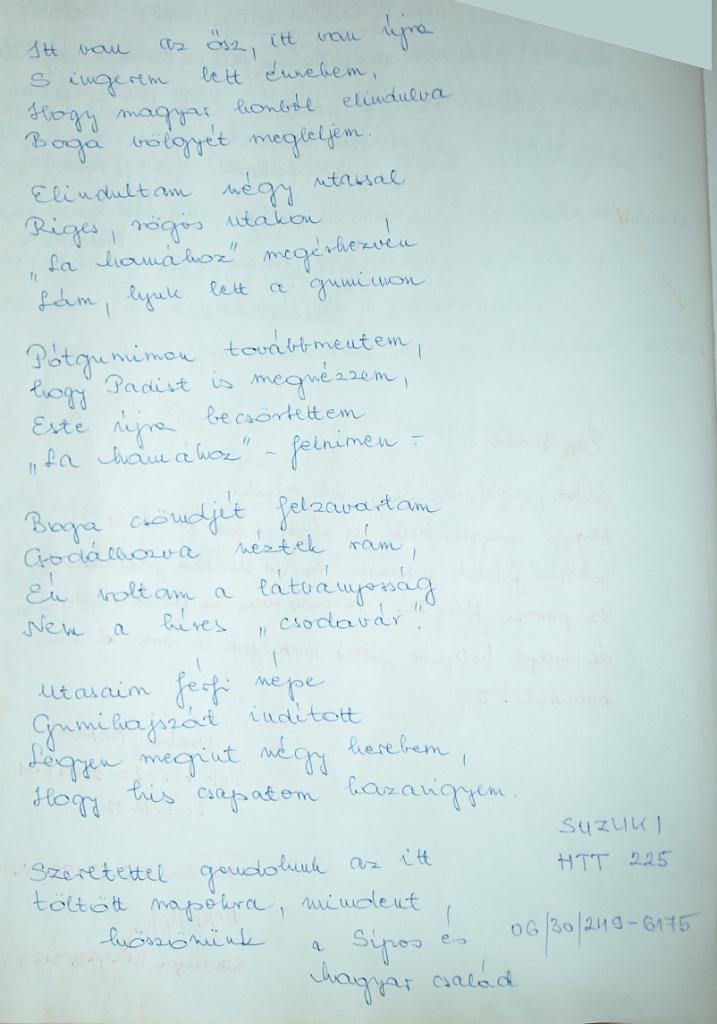 Itt van az ősz, itt van újra
S ingerem lett énnekem,
Hogy magyar honból elindulva
Boga völgyét megleljem.
Elindultam négy utassal
Riges, rögös utakon
„La mamához" megérkezvén
Lám, lyuk lett a gumimon
Pótgumimon továbbmentem,
hogy Padist is megnézzem,
Este újra becsörtettem
„La mamához" - felnimen -
Boga csöndjét felzavartam
Csodálkozva néztek rám,
Én voltam a látványosság
Nem a híres „csodavár".
Utasaim férfi népe
Gumihajszát indított
Légyen megint négy kerekem,
Hogy kis csapatom hazavigyem.
Szeretettel gondolunk az itt
töltött napokra, mindent
köszönünk a Sipos és
Magyar család
SUZUKI
HTT 225
06/30/249-6175